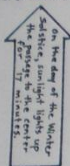 on the day of the Winter
Solstice, sunlight lights up
the passage to the center
for 17 minutes